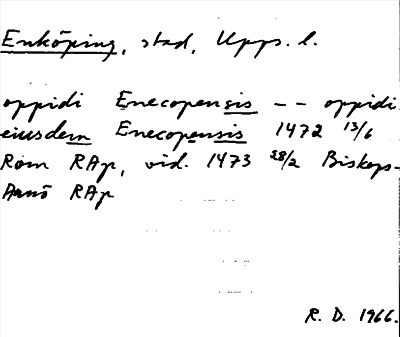 Enköping, stad, Upps. l.
oppidi Enecopensis -- oppidi
eiusdem Enecopensis 1472 13/6
Rom RAp, vid. 1473 28/2 Biskops-
Arnö RAp
R. D. 1966.